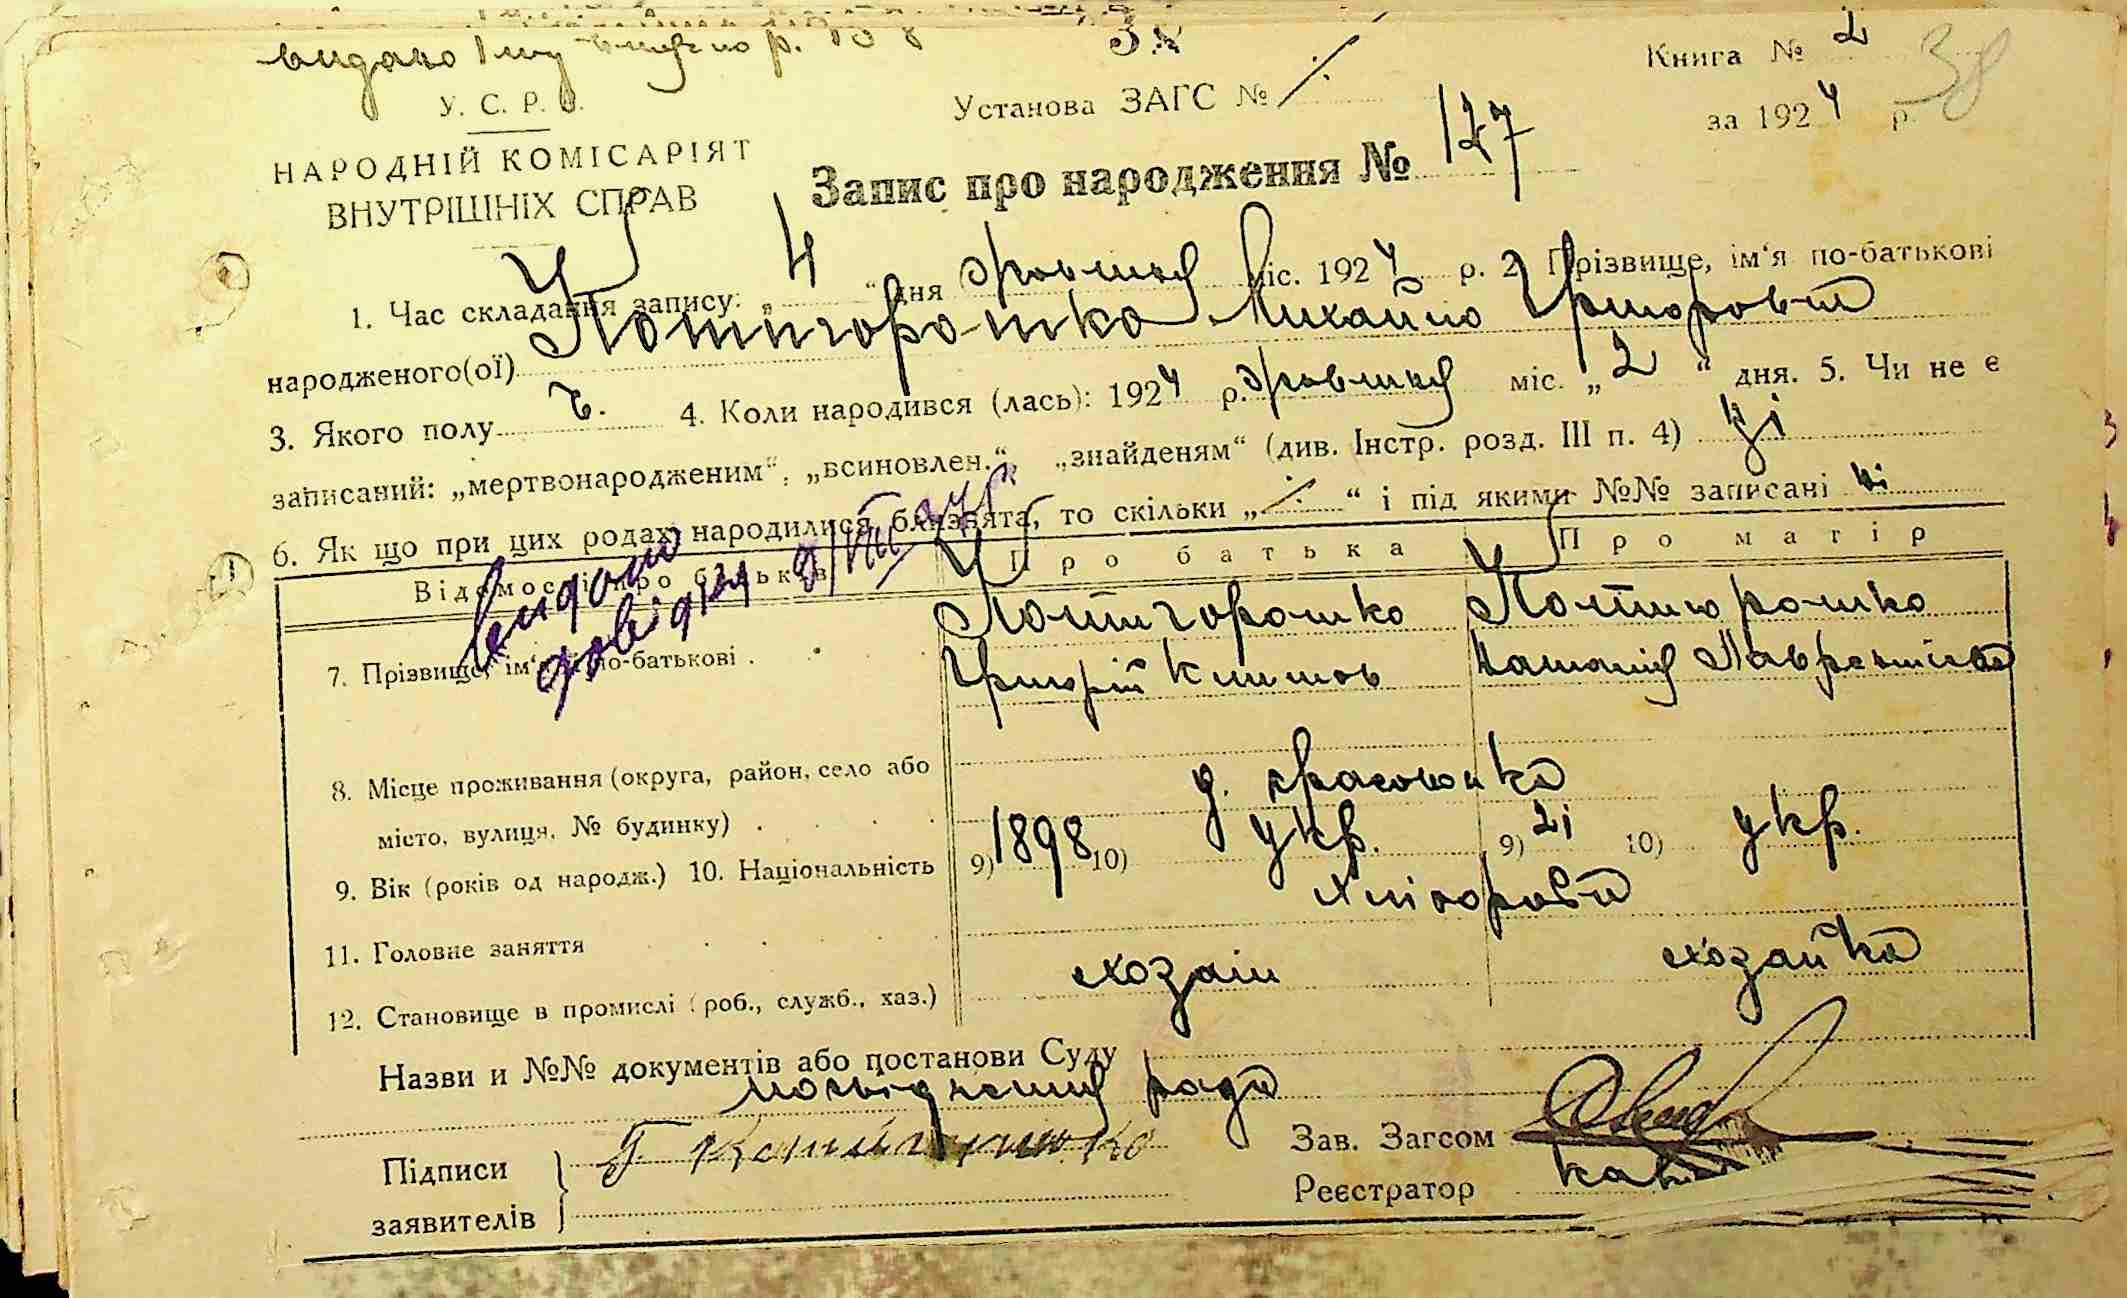 видано
38
Книга № 2
38
У. С. Р. Р.
Установа ЗАГС №
за 1924 р.
НАРОДНІЙ КОМІСАРІЯТ
ВНУТРІШНІХ СПРАВ
Запис про народження № 127
1. Час складання запису: „ 4 “ дня міс. 1924 р. 2. Прізвище, ім‘я по-батькові
народженого(ої) Котигорошко Михайло Григорович
3. Якого полу ч. 4. Коли народився (лась): 1924 р. міс. „ 2 “ дня. 5. Чи не є
записаний: „мертвонародженим“, „всиновлен.“, „знайденям“ (див. Інстр. розд. III п. 4) ні
6. Як що при цих родах народилися близнята, то скільки „ “ і під якими №№ записані ні
Відомості про батьків Про батька Про матір
видано
довідку
7. Прізвище, ім‘я по-батькові Котигорошко Котигорошко
Григорій Климов Наталія Лаврентіївна
8. Місце проживання (округа, район, село або
місто, вулиця, № будинку)
9. Вік (років од народж.) 10. Національність 9) 1898 10) укр. 9) 21 10) укр.
11. Головне заняття хліборобст
12. Становище в промислі (роб., служб., хаз.) хозаїн хозайка
Назви и №№ документів або постанови Суду
посвідчення ради
Підписи
заявителів
Г Котигорошко
Зав. Загсом
Реєстратор